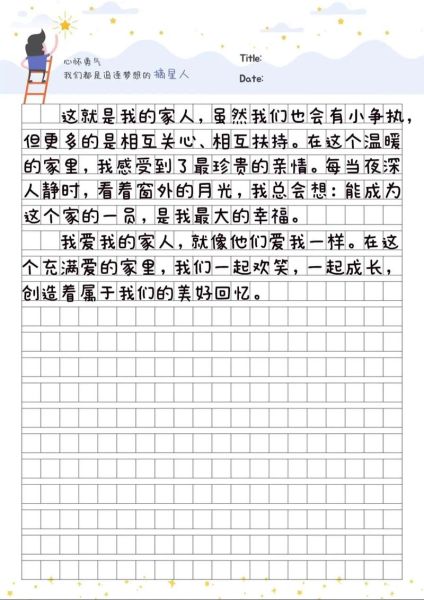 心怀勇气
我们都是追逐梦想的 摘星人
Title:
Date:
这就是我的家人，虽然我们也会有小争执，
但更多的是相互关心、相互扶持。在这个温暖
的家里，我感受到了最珍贵的亲情。每当夜深
人静时，看着窗外的月光，我总会想：能成为
这个家的一员，是我最大的幸福。
我爱我的家人，就像他们爱我一样。在这
个充满爱的家里，我们一起欢笑，一起成长，
创造着属于我们的美好回忆。